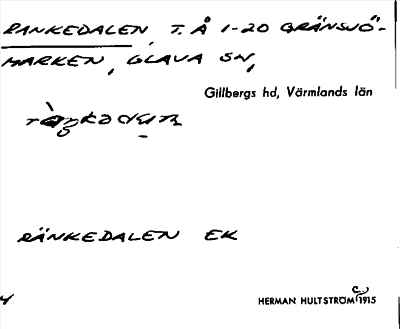 RANKEDALEN, T. Å 1-20 GRÄNSJÖ-
MARKEN, GLAVA SN,
Gillbergs hd, Värmlands län
RÄNKEDALEN EK
HERMAN HULTSTRÖM C 1915